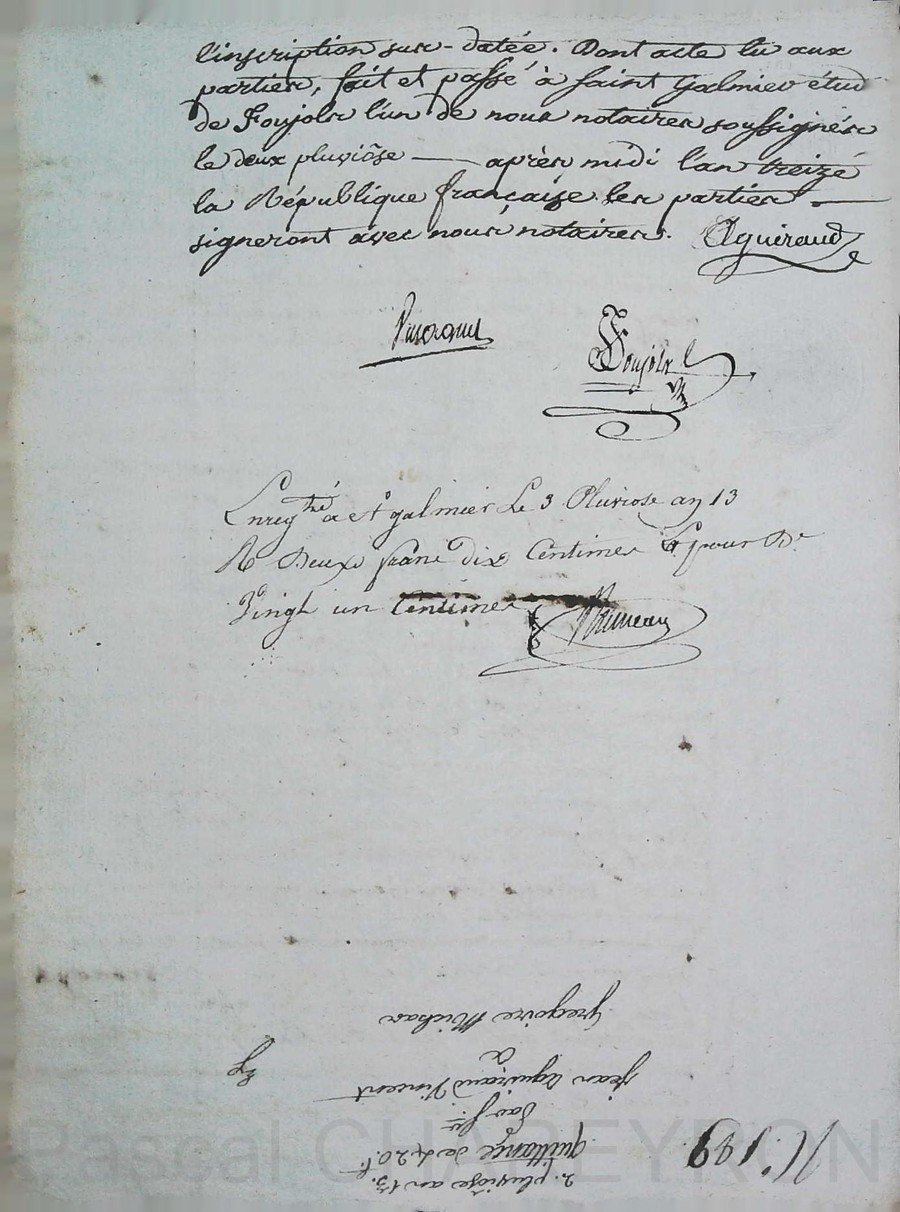 l'inscription sus-datée. Dont acte lu aux
parties, fait et passé à Saint Galmier étude
de Foujols l'un de nous notaires soussignés
le deux pluviôse — après midi l'an treize
la République française. les parties —
signeront avec nous notaires. Aguiraud
Foujols
Enregtré a st galmier Le 3 Pluviose an 13
R Deux franc dix Centimes pour
Vingt un Centimes
N.° 199
2. pluviôse an 13.
quittance de 420 f.
par Sr
jean aguiraud Vincent
a
gregoire
Pascal CHAPEYRON